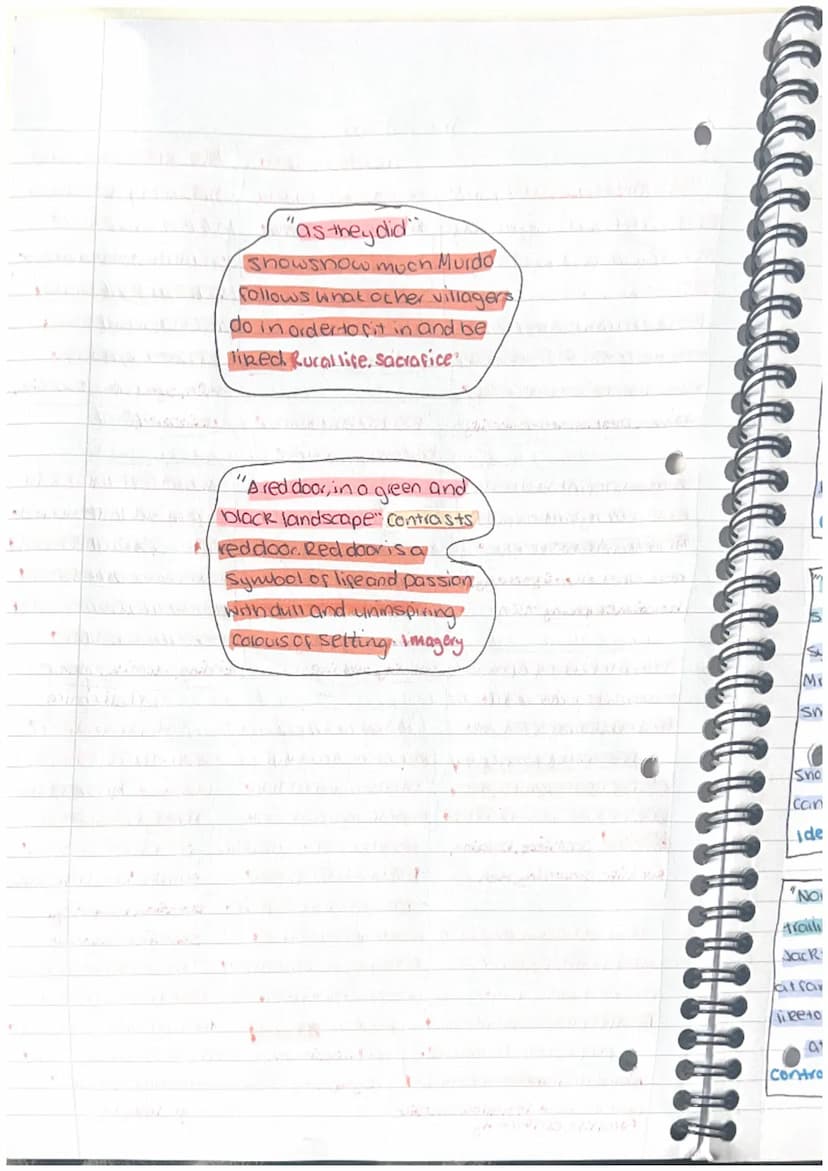 "as they did"
shows how much Murdo
follows what other villagers
do in order to fit in and be
liked. Rural life. Sacrafice.
"A red door, in a green and
black landscape" contrasts
red door. Red door is a
symbol of life and passion
with dull and uninspiring
colours of setting. imagery
Mr
sno
can
Ide
"No
traili
Jack
at far
like to
contra